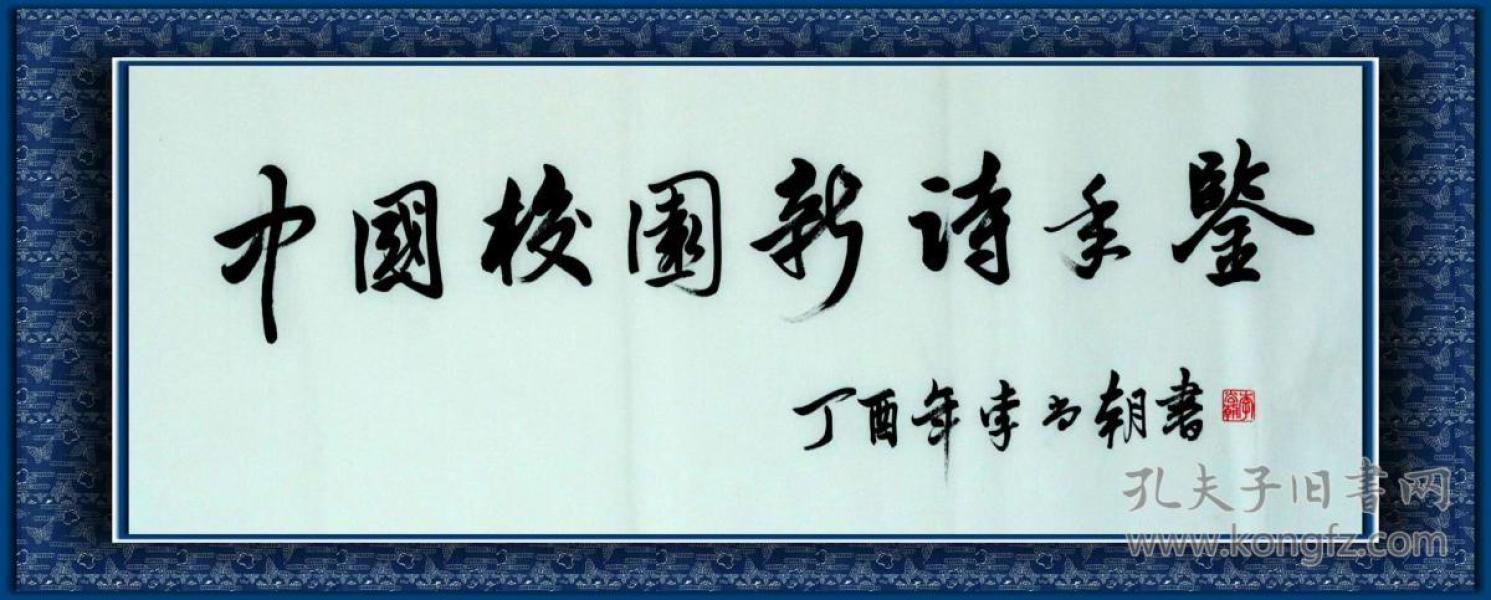 中國校園新诗年鉴
丁酉年李尚朝書
孔夫子旧书网
www.kongfz.com